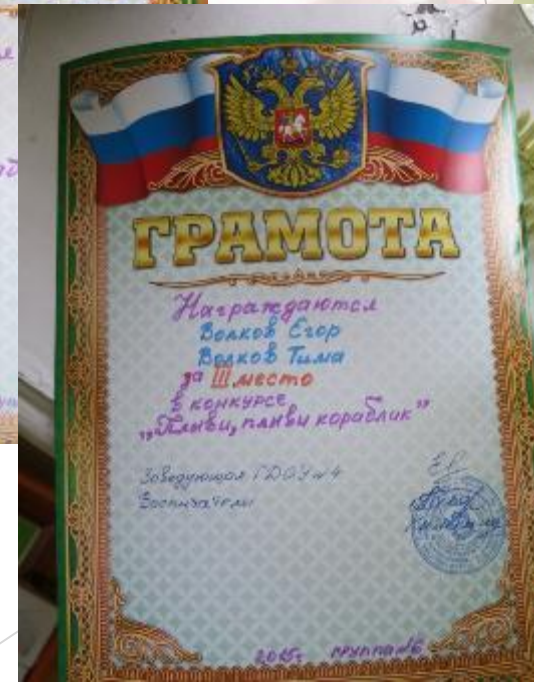 ГРАМОТА
Награждаются
Волков Егор
Волков Тима
за III место
в конкурсе
„Плыви, плыви кораблик”
Заведующая ГДОУ №4
Воспитатели
2015г группа №6